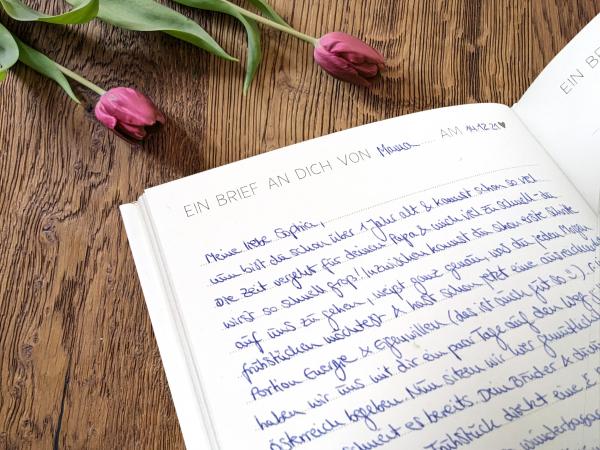 EIN BRIEF AN DICH VON Mama AM 14.12.21♥
EIN BRIE
Meine liebe Sophia,
nun bist du schon über 1 Jahr alt & kannst schon so viel.
Die Zeit vergeht für deinen Papa & mich viel zu schnell - du
wirst so schnell groß! Inzwischen kannst du schon erste Schritte
auf uns zu gehen, weißt ganz genau, was du jeden Morgen
frühstücken möchtest & hast schon jetzt eine ausreichende
Portion Energie & Eigenwillen (das ist auch gut so :)).
haben wir uns mit dir ein paar Tage auf den Weg
Österreich begeben. Nun sitzen wir hier gemütlich
schneit es bereits. Dein Bruder &
Frühstück direkt eine